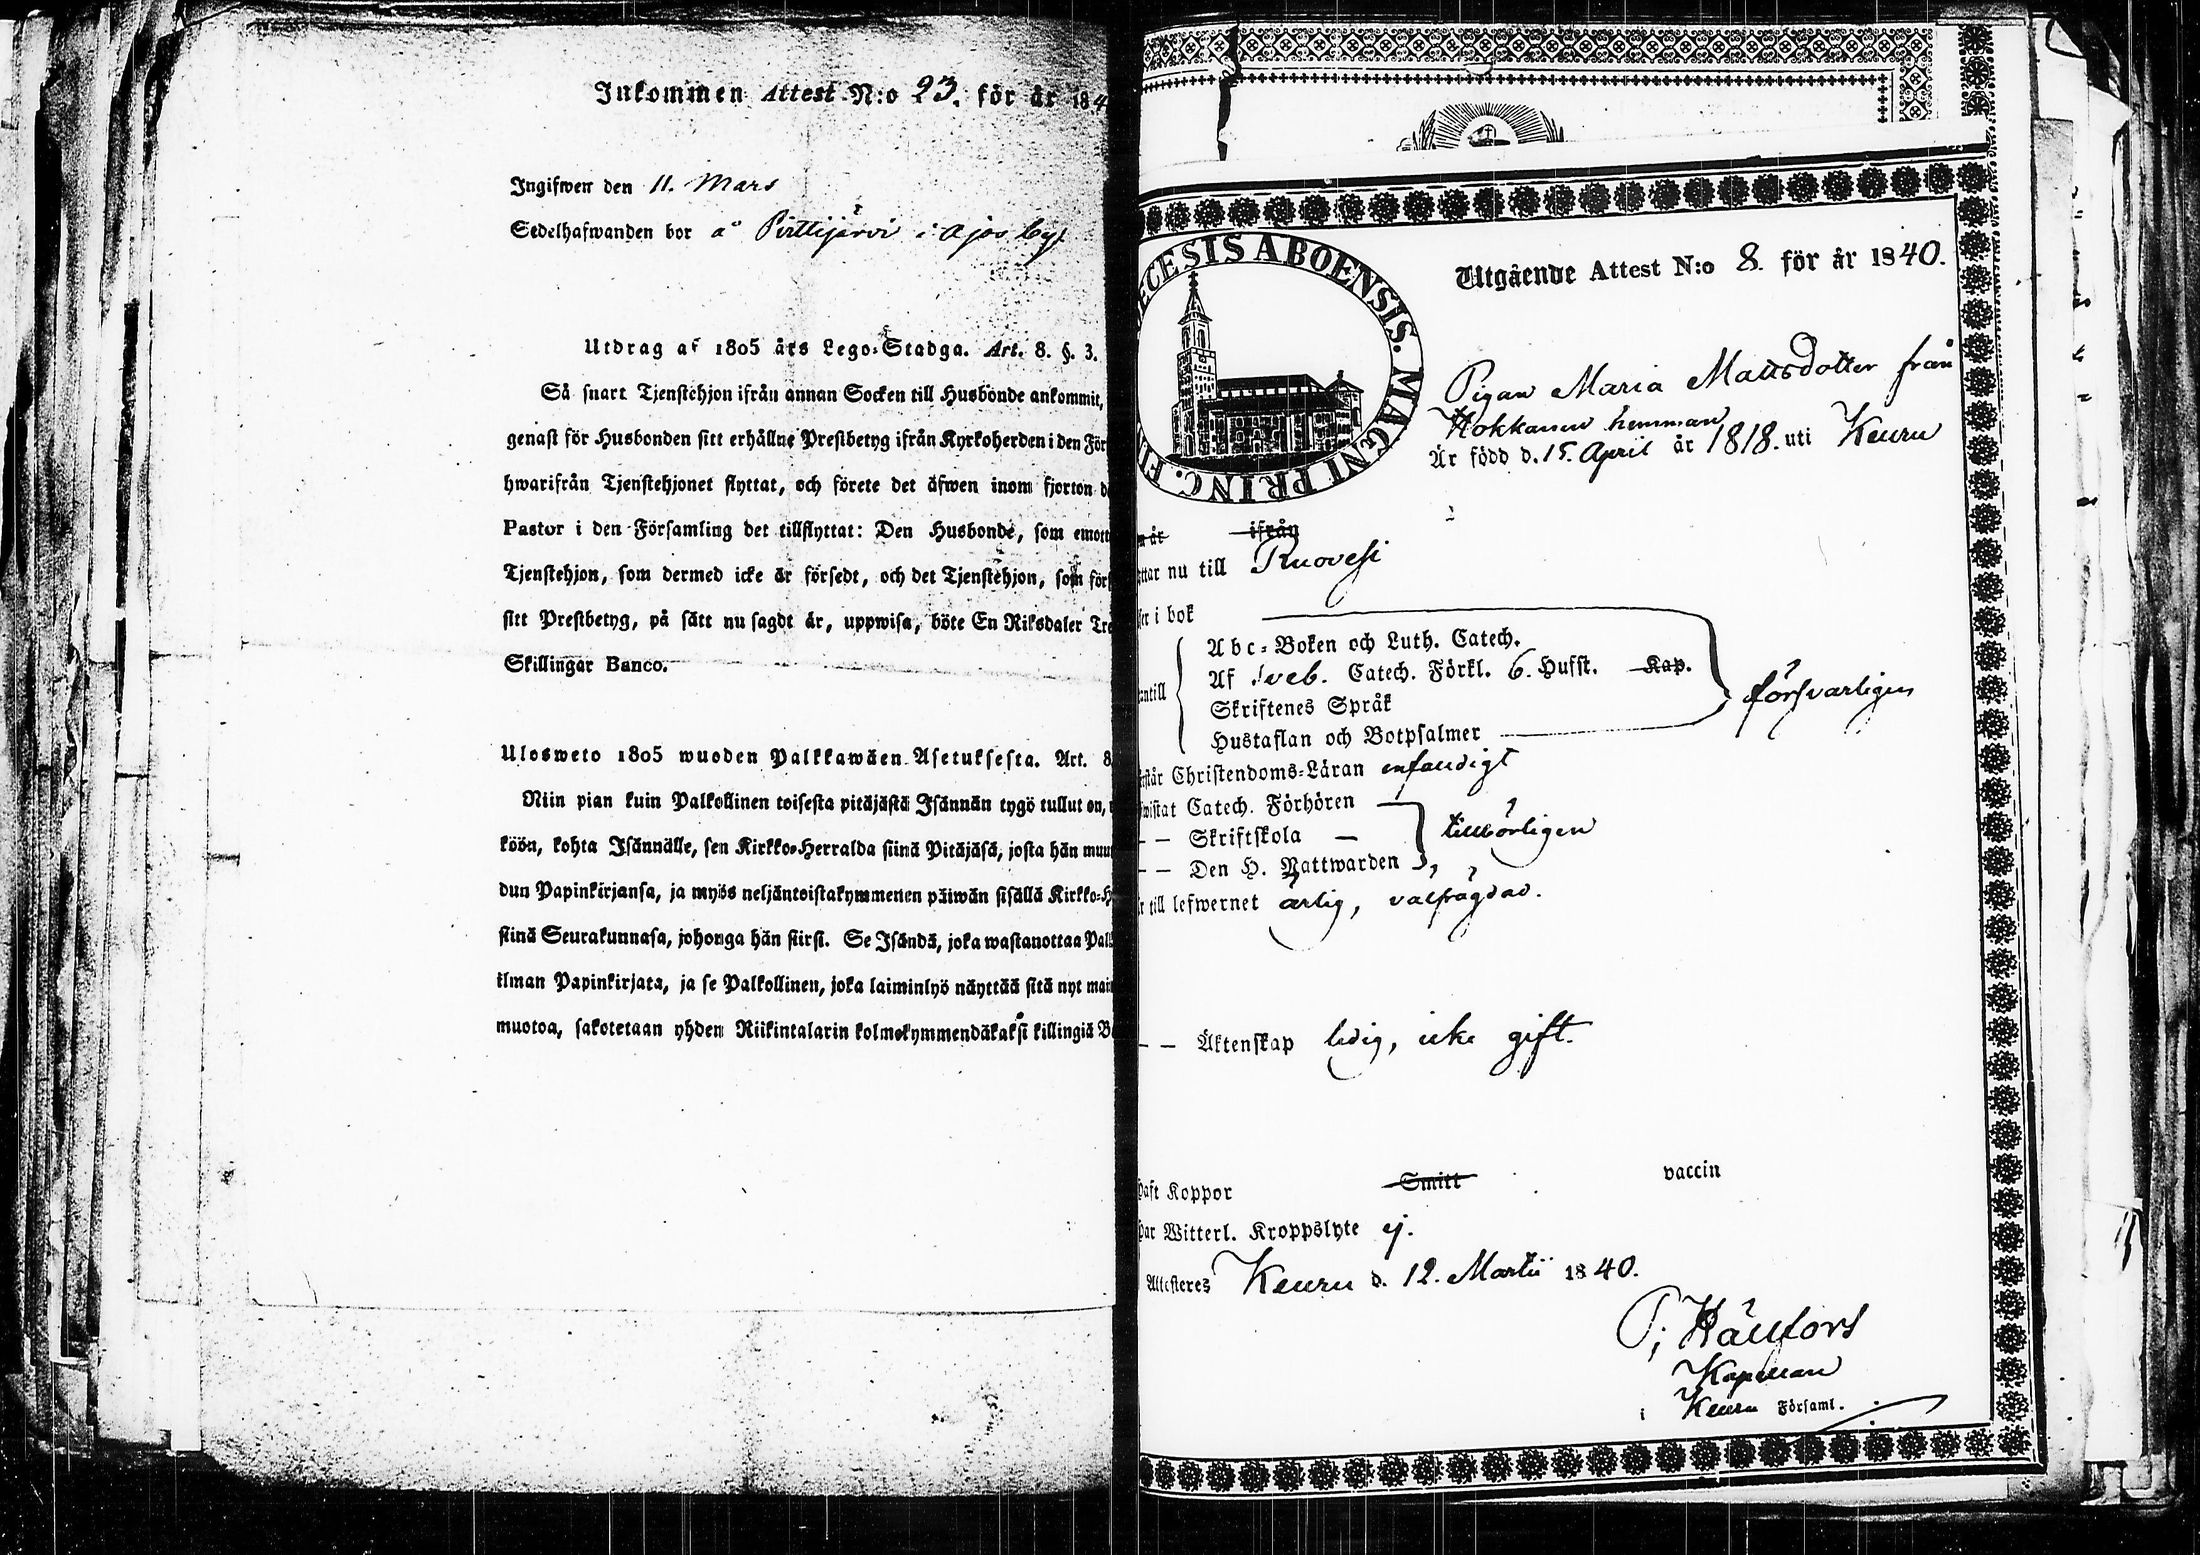 Inkommen Attest N:o 23. för år 184
Ingifwen den 11. Mars
Sedelhafwanden bor å Pirttijärvi i Ajos by.
Utdrag af 1805 års Lego-Stadga. Art. 8. §. 3.
Så snart Tjenstehjon ifrån annan Socken till Husbonde ankommit,
genast för Husbonden sitt erhållne Prestbetyg ifrån Kyrkoherden i den För
hwarifrån Tjenstehjonet flyttat, och förete det äfwen inom fjorton d
Pastor i den Församling det tillflyttat: Den Husbonde, som emott
Tjenstehjon, som dermed icke är försedt, och det Tjenstehjon, som förs
sitt Prestbetyg, på sätt nu sagdt är, uppwisa, böte En Riksdaler Tre
Skillingar Banco.
Ulosweto 1805 wuoden Palkkawäen Asetuksesta. Art. 8.
Niin pian kuin Palkollinen toisesta pitäjästä Isännän tygö tullut on,
köön, kohta Isännälle, sen Kirkko-Herralda siinä Pitäjäsä, josta hän muut
dun Papinkirjansa, ja myös neljäntoistakymmenen päiwän sisällä Kirkko-H
siinä Seurakunnasa, johonga hän siirsi. Se Isändä, joka wastanottaa Palk
ilman Papinkirjata, ja se Palkollinen, joka laiminlyö näyttää sitä nyt main
muotoa, sakotetaan yhden Riikintalarin kolmekymmendäkaksi killingiä B
ECESIS ABOENSIS. MAGNI PRINC. FI
Utgående Attest N:o 8. för år 1840.
Pigan Maria Mattsdotter från
Hokkanen hemman
Är född d. 15. April år 1818. uti Keuru
år ifrån
ttar nu till Ruovesi
ser i bok
antill
Abc-Boken och Luth. Catech.
Af Sveb. Catech. Förkl. 6. Husst. Kap.
Skriftenes Språk
Hustaflan och Botpsalmer
försvarligen
rstår Christendoms-Läran enfaudigt
wistat Catech. Förhören
— — Skriftskola —
— — Den H. Nattwarden
tillbörligen
r till lefwernet ärlig, välfrägdad.
— — Äktenskap ledig, icke gift.
haft Koppor Smitt vaccin
har Witterl. Kroppslyte ej.
Attesteres Keuru d. 12. Martii 1840.
P. Hällfors
Kapellan
i Keuru Församl.